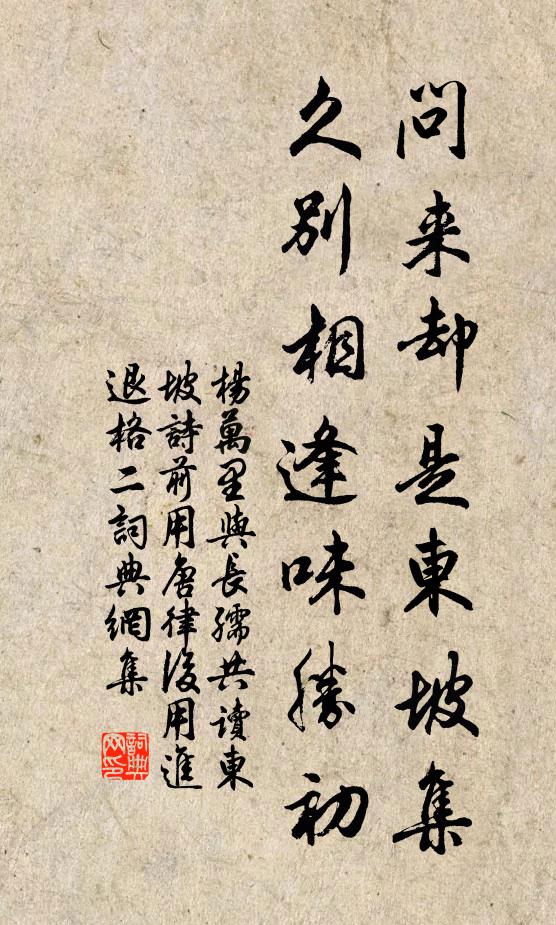 問来却是東坡集
久別相逢味勝初
楊萬里與長孺共讀東
坡詩前用唐律後用進
退格二詞典網集
詞典網印